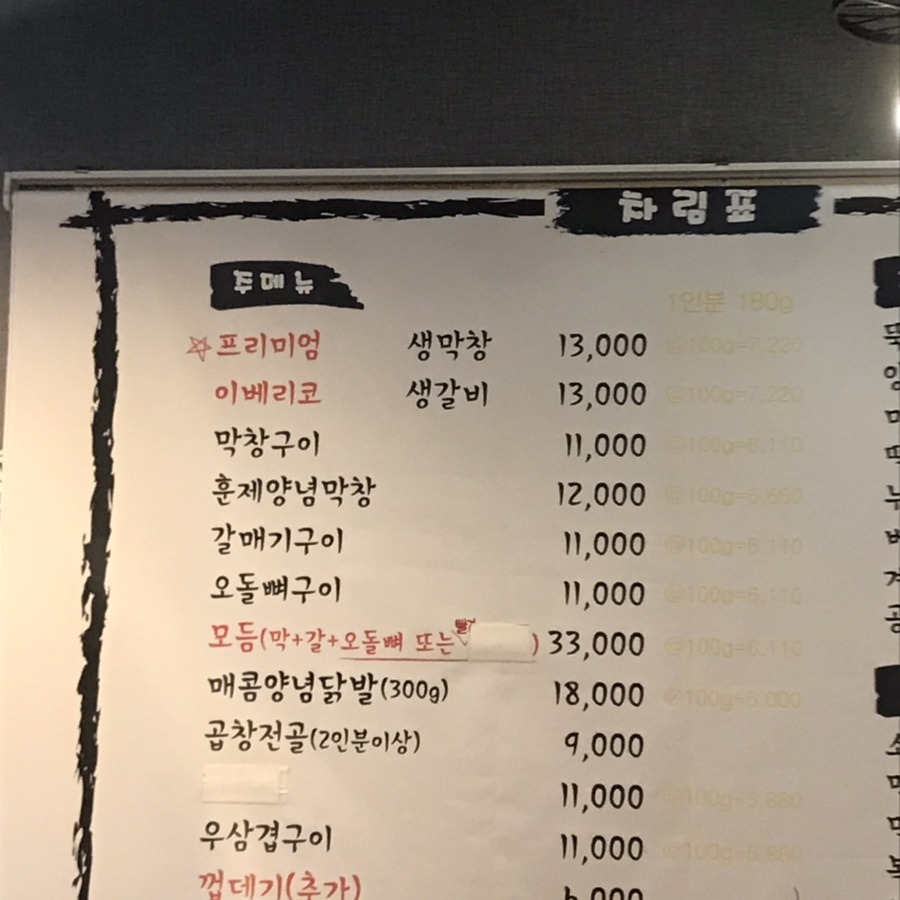 차림표
주메뉴
1인분 180g
프리미엄 생막창 13,000 @100g=7,220
이베리코 생갈비 13,000 @100g=7,220
막창구이 11,000 @100g=6,110
훈제양념막창 12,000 @100g=6,660
갈매기구이 11,000 @100g=6,110
오돌뼈구이 11,000 @100g=6,110
모듬(막+갈+오돌뼈 또는 ) 33,000 @100g=6,110
매콤양념닭발(300g) 18,000 @100g=6,000
곱창전골(2인분이상) 9,000
11,000 @100g=5,880
우삼겹구이 11,000 @100g=5,880
껍데기(추가)